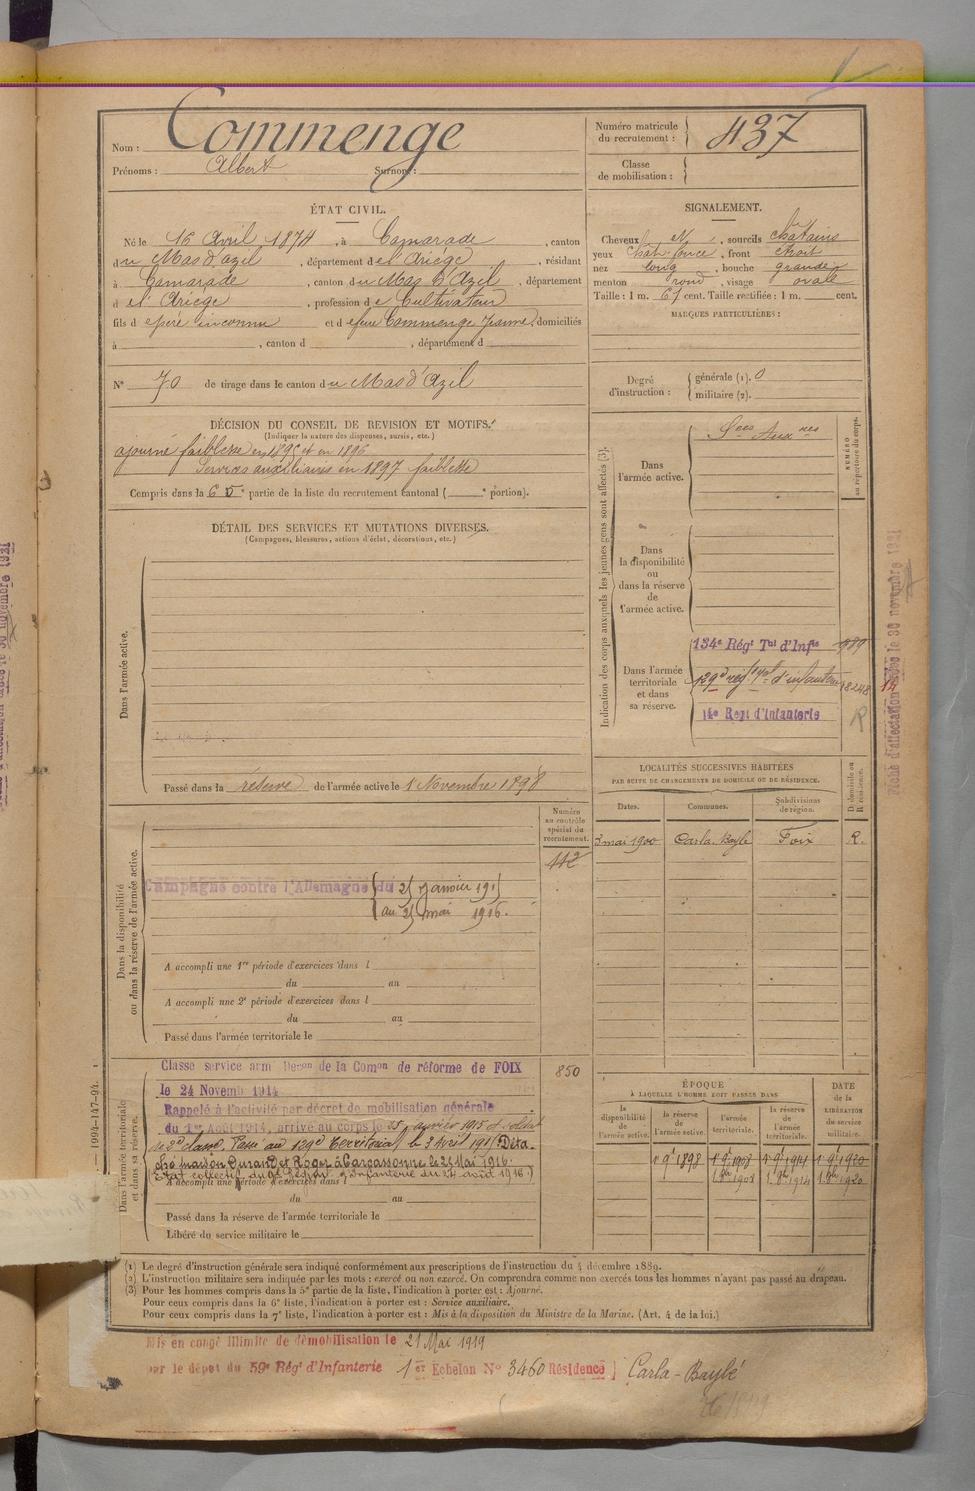 Nom : Commenge
Prénoms : Albert Surnom :
Numéro matricule du recrutement : 437
Classe de mobilisation :
ÉTAT CIVIL.
Né le 16 Avril 1874, à Camarade, canton
du Mas d'azil, département de l'Ariège, résidant
à Camarade, canton du Mas d'Azil, département
d el'Ariège, profession de Cultivateur
fils d epère inconnu et d efeue Commenge Jeanne, domiciliés
à , canton d , département d
N° 70 de tirage dans le canton du Mas d'Azil
SIGNALEMENT.
Cheveux N , sourcils chatains
yeux chat. foncé , front étroit
nez long , bouche grande
menton rond , visage ovale
Taille : 1 m. 67 cent. Taille rectifiée : 1 m. cent.
MARQUES PARTICULIÈRES :
Degré d'instruction : générale (1). 0
militaire (2).
DÉCISION DU CONSEIL DE REVISION ET MOTIFS.
(Indiquer la nature des dispenses, sursis, etc.)
ajourné faiblesse en 1895 et en 1896
Services auxiliaires en 1897 faiblesse
Compris dans la 6 partie de la liste du recrutement cantonal ( e portion).
DÉTAIL DES SERVICES ET MUTATIONS DIVERSES.
(Campagnes, blessures, actions d'éclat, décorations, etc.)
Dans l'armée active.
Passé dans la réserve de l'armée active le 1 Novembre 1898
Indication des corps auxquels les jeunes gens sont affectés (3).
NUMÉRO au répertoire du corps.
Dans l'armée active.
Sces Auxres
Dans la disponibilité ou dans la réserve de l'armée active.
Dans l'armée territoriale et dans sa réserve.
134e Régt Tal d'Infie 989
129e régt d'infanterie 18248
14e Regt d'Infanterie R
Fiché d'affectation le 30 novembre 1921
LOCALITÉS SUCCESSIVES HABITÉES
PAR SUITE DE CHANGEMENTS DE DOMICILE OU DE RÉSIDENCE.
Dates. Communes. Subdivisions de région. D. domicile ou R. résidence.
3 mai 1900 Carla-Bayle Foix R.
Dans la disponibilité ou dans la réserve de l'armée active.
Numéro au contrôle spécial du recrutement.
112
Campagne contre l'Allemagne du 25 janvier 1915
au 25 mai 1916.
A accompli une 1re période d'exercices dans l
du au
A accompli une 2e période d'exercices dans l
du au
Passé dans l'armée territoriale le
Dans l'armée territoriale et dans sa réserve.
850
Classe service arm Décon de la Comon de réforme de FOIX
le 24 Novemb 1914
Rappelé à l'activité par décret de mobilisation générale
du 1er Août 1914, arrivé au corps le 25 janvier 1915 et soldat
de 2e classe. Passé au 129e Territorial le 3 Avril 1915 Déta-
ché maison Durand et Roger à Carcassonne le 25 Mai 1916.
A accompli une période d'exercices dans l
du au
Passé dans la réserve de l'armée territoriale le
Libéré du service militaire le
ÉPOQUE
À LAQUELLE L'HOMME DOIT PASSER DANS
la disponibilité de l'armée active. la réserve de l'armée active. l'armée territoriale. la réserve de l'armée territoriale.
DATE de la LIBÉRATION du service militaire.
1 9b 1898 1 9b 1908 1 9b 1914 1 9b 1920
1 8b 1908 1 8b 1914 1 8b 1920
— 1994-147-94.
(1) Le degré d'instruction générale sera indiqué conformément aux prescriptions de l'instruction du 4 décembre 1889.
(2) L'instruction militaire sera indiquée par les mots : exercé ou non exercé. On comprendra comme non exercés tous les hommes n'ayant pas passé au drapeau.
(3) Pour les hommes compris dans la 5e partie de la liste, l'indication à porter est : Ajourné.
Pour ceux compris dans la 6e liste, l'indication à porter est : Service auxiliaire.
Pour ceux compris dans la 7e liste, l'indication à porter est : Mis à la disposition du Ministre de la Marine. (Art. 4 de la loi.)
Mis en congé illimité de démobilisation le 21 Mai 1919
par le dépôt du 59e Régt d'Infanterie 1er Echelon N° 3460 Résidence Carla-Baylé